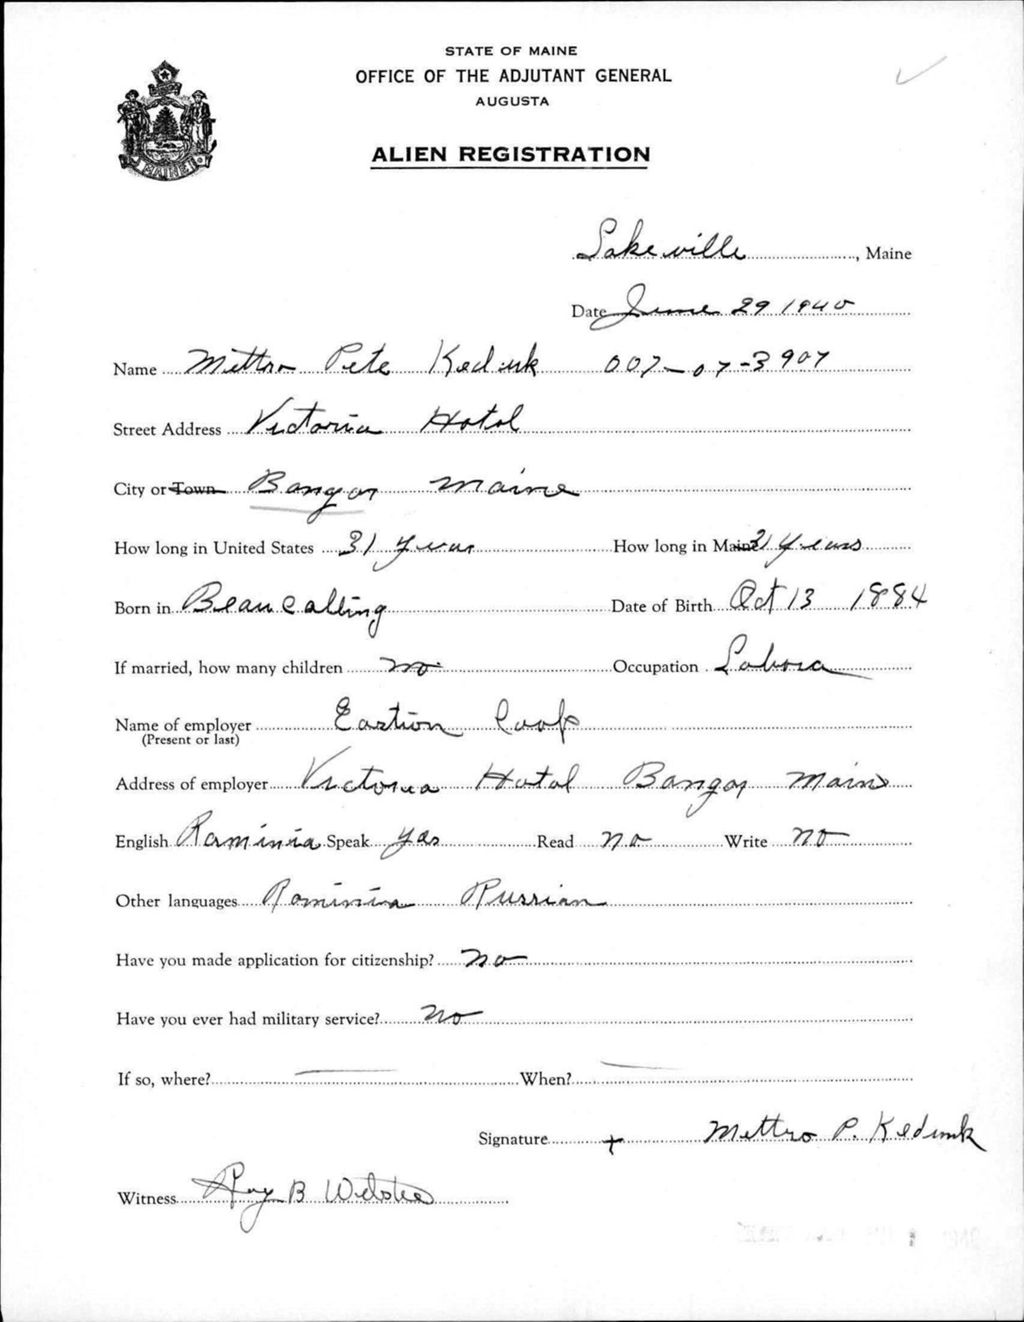 STATE OF MAINE
OFFICE OF THE ADJUTANT GENERAL
AUGUSTA
MAINE
ALIEN REGISTRATION
Lakeville, Maine
Date June 29 1940
Name Mettro Pete Keduk 007-07-3907
Street Address Victoria Hotol
City or Town Bangor Maine
How long in United States 31 years How long in Maine 31 Years
Born in Beaucalling Date of Birth Oct 13 1884
If married, how many children no Occupation Labora
Name of employer Eastion Coop
(Present or last)
Address of employer Victoria Hotal Bangor Maine
English Raminia Speak yas Read no Write no
Other languages Rominia Russian
Have you made application for citizenship? no
Have you ever had military service? no
If so, where? When?
Signature + Mettro P. Keduk
Witness Roy B Webster